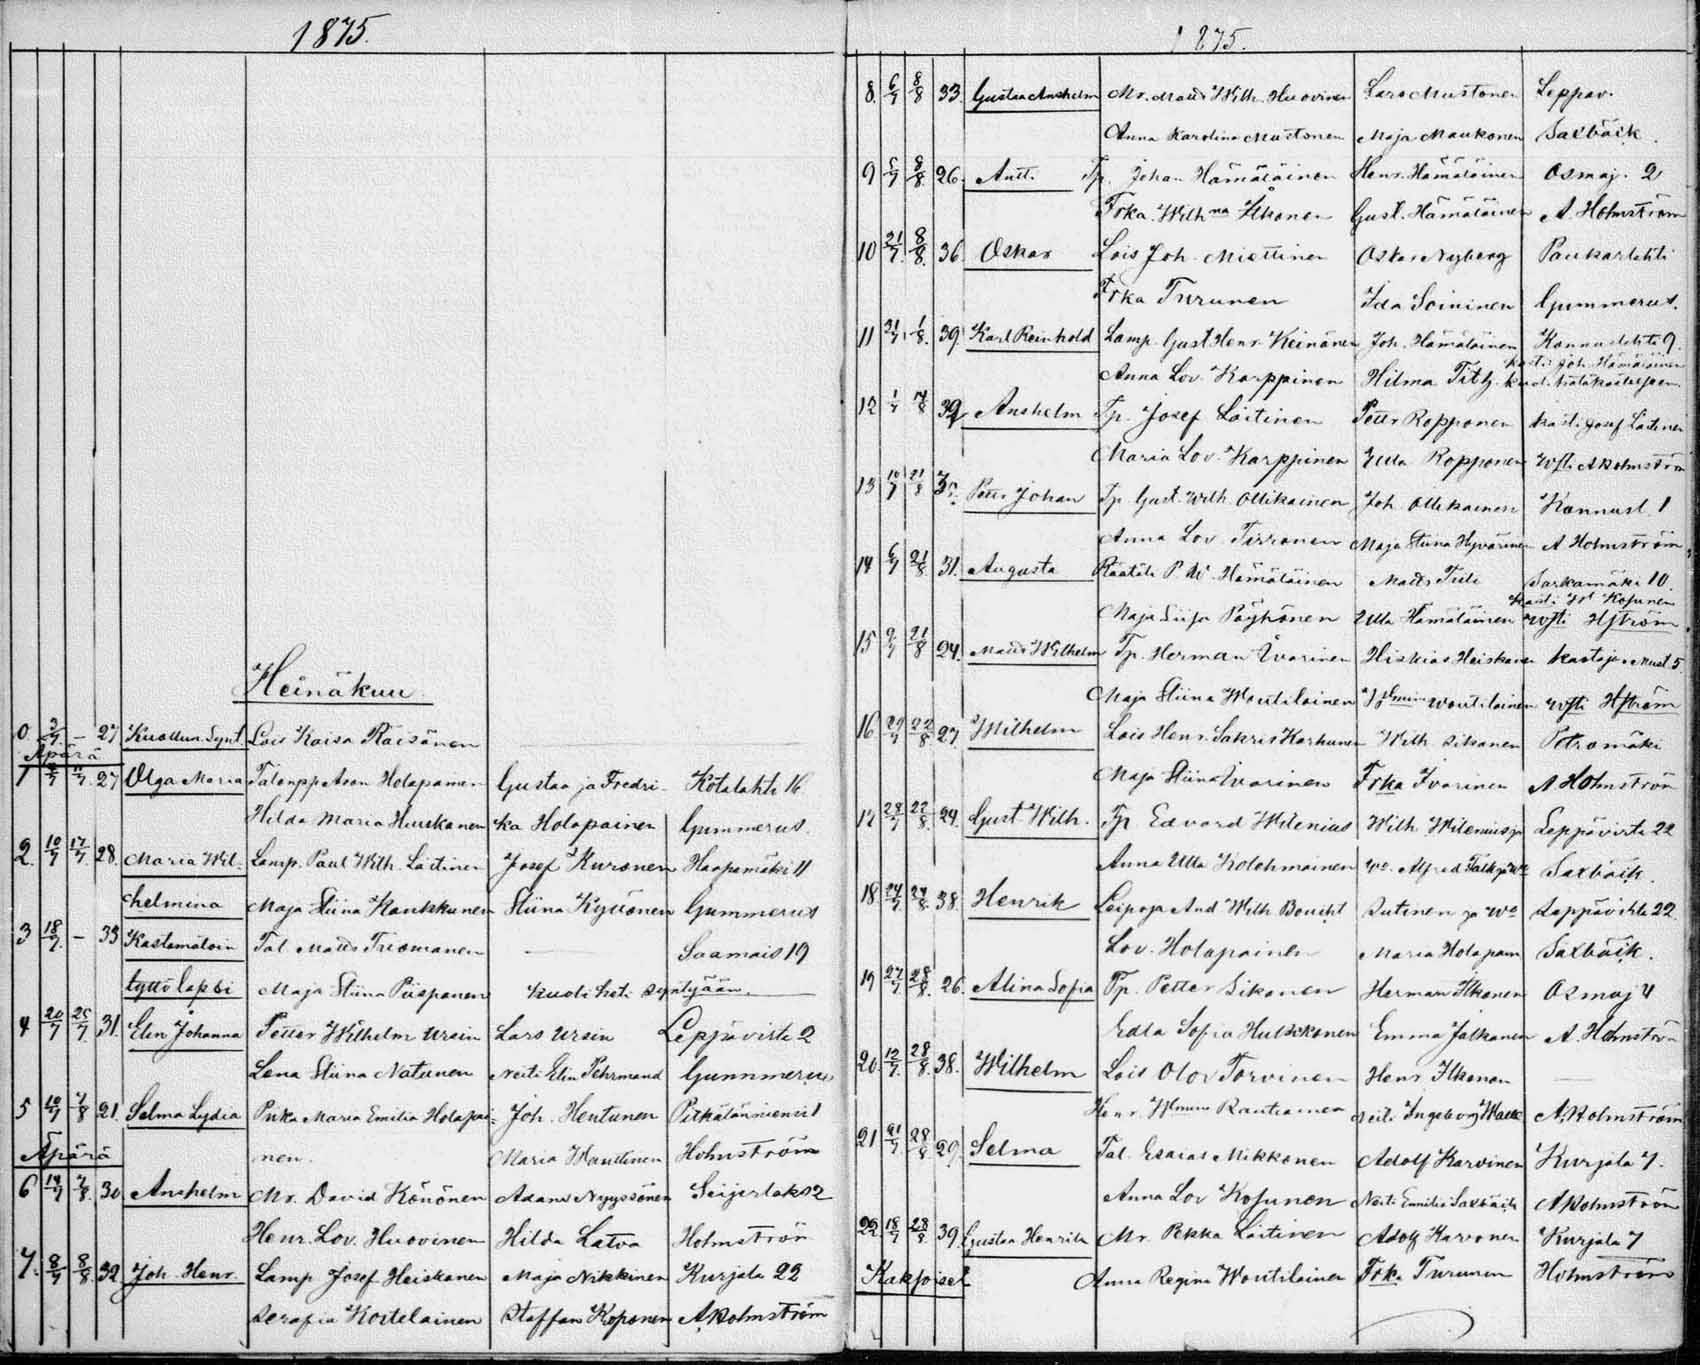 1875.
Heinäkuu
0 3/7 – 27 Kuollun. Synt. Lois Kaisa Räisänen
Äpärä
1 27 Olga Maria Talonpp Aron Holopainen Gustaa ja Fredri- Kotalahti 16
Hilda Maria Huuskanen ka Holopainen Gummerus.
2. 10/7 17/7 28. Maria Wil- Lamp. Paul Wilh. Laitinen Josef Kuronen Haapamäki 11
helmina Maja Stiina Kaukkunen Stiina Kyttönen Gummerus
3 18/7 – 33 Kastamatoin Tal. Matts Saamais 19
tyttölapsi Maja Stiina Piispanen kuoli heti syntyään
4 20/7 25/7 31. Elin Johanna Petter Wilhelm Ursin Lars Ursin Leppävirta 2
Lena Stiina Natunen Neiti Elin Pehrmand Gummerus
5 10/7 7/8 21. Selma Lydia Piika Maria Emilia Holopai- Joh. Hentunen Pitkälänniemi 1
Äpärä nen. Maria Wanttinen Holmström
6 14/7 7/8 30 Anshelm Mr. David Könönen Adam Nyyssönen Seijerlaks 2
Henr. Lov. Huovinen Hilda Latva Holmström
7. 8/7 8/8 32 Joh. Henr. Lamp Josef Heiskanen Maja Nikkinen Kurjala 22
Serafia Kortelainen Staffan Koponen A Holmström
1875.
8. 6/7 8/8 33. Gustaa Anshelm Mr. Matts Wilh. Huovinen Lars Mustonen Leppäv.
Anna Karolina Mustonen Maja Maukonen Saxbäck.
9 5/7 8/8 26. Antti Tp. Johan Hämäläinen Henr. Hämäläinen Osmaj. 2
Frka. Wilhna Ilkonen Gust. Hämäläinen A. Holmström
10 21/7 8/8. 36. Oskar Lois Joh. Miettinen Oskar Nyberg Paukarlahti
Frka Turunen Ida Soininen Gummerus.
11 31/7. 1/8. 39. Karl Reinhold Lamp. Gust Henr. Keinänen Joh. Hämäläinen Konnuslahti 9.
kasti Joh. Hämäläinen
Anna Lov. Karppinen Hilma
12 1/7 14/8 39 Anshelm Tp. Josef Laitinen Petter Ropponen kasti Josef Laitinen
Maria Lov. Karppinen Ulla Ropponen wfti A Holmström
13 10/7 21/8 Petter Johan Tp. Gust. Wilh. Ollikainen Joh. Ollikainen Konnusl. 1
Anna Lov. Tirronen Maja Stiina Hyvärinen A Holmström
14 6/7 21/8 31. Augusta Räätäli P. W. Hämäläinen Matts Tuli Sarkamäki 10.
Kosunen
Maja Pöyhönen Ulla Hämäläinen wfti Hström
15 9/7 21/8 24. Matts Wilhelm Tp. Herman Ivarinen Hiskias Heiskanen kastaja
Maja Stiina Woutilainen Woutilainen wfti Hström
16 29/7 22/8 27. Wilhelm Lois Henr. Sakris Karhunen Wilh. Sikanen Petromäki
Maja Stiina Ivarinen Frka Ivarinen A Holmström
17 28/7 22/8. 24. Gust Wilh. Tp. Edvard Wilenius Wilh. Wilenius ja Leppävirta 22
Anna Ulla Kolehmainen Wo. Alfred Saxbäck.
18. 24/7 24/8. 38. Henrik Leipoja And Wilh Boucht Sutinen ja Wo Leppävirta 22
Lov. Holopainen Maria Holopain Saxbäck.
19 27/7 28/8. 26. Alina Sofia Tp. Petter Sikanen Herman Ilkonen Osmaj 4
Edla Sofia Hulkkonen Emma Jalkanen A. Holmström
20. 12/7. 28/8. 38. Wilhelm Lois Olov Torvinen Henr. Ilkonen
Henr. Rautiainen Neiti Ingeborg A. Holmström
21 21/7 28/8 29. Selma Tal. Esaias Mikkonen Adolf Karvinen Kurjala 7.
Anna Lov Kosunen Neiti Emilie Saxbäck A Holmström
22 18/7 28/8 39. Gustaa Henrik Mr. Pekka Laitinen Adolf Karvonen Kurjala 7
Kaksoiset Anna Regina Woutilainen Frka Turunen Holmström